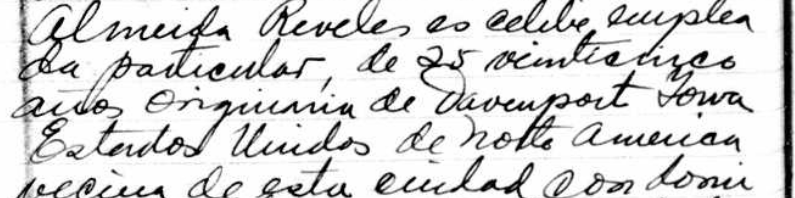 Almeida Reveles es celibe, emplea
da particular, de 25 veinticinco
años originaria de Davenport Iowa
Estados Unidos de Norte America
vecina de esta ciudad con domi